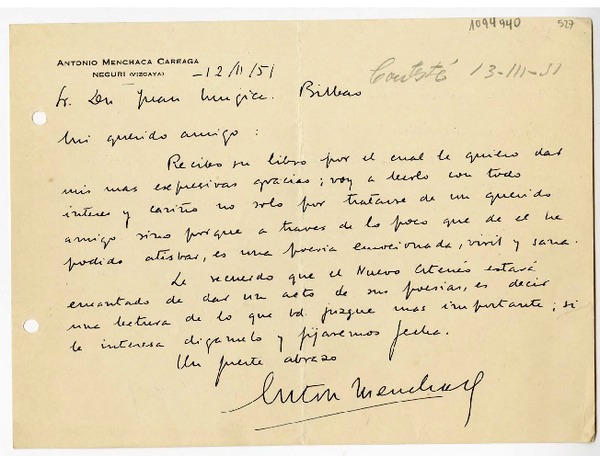 1094940
527
ANTONIO MENCHACA CAREAGA
NEGURI (VIZCAYA)
-12/11/51
Contesté 13-III-51
Sr. Dn Juan Mugica. Bilbao
Mi querido amigo:
Recibo su libro por el cual le quiero dar
mis mas expresivas gracias; voy a leerlo con todo
interes y cariño no solo por tratarse de un querido
amigo sino porque a traves de lo poco que de el he
podido atisbar, es una poesia emocionada, viril y sana.
Le recuerdo que el Nuevo Ateneo estará
encantado de dar un acto de sus poesias, es decir
una lectura de lo que Vd. juzgue mas importante; si
le interesa digamelo y fijaremos fecha.
Un fuerte abrazo
Anton Menchaca